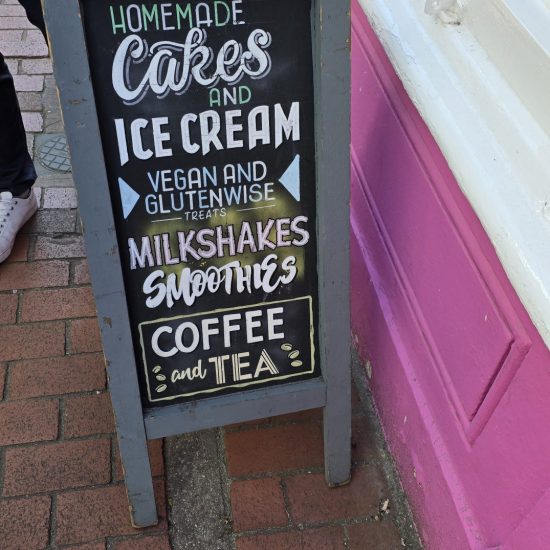 HOMEMADE
Cakes
AND
ICE CREAM
VEGAN AND
GLUTENWISE
TREATS
MILKSHAKES
SMOOTHIES
COFFEE
and TEA